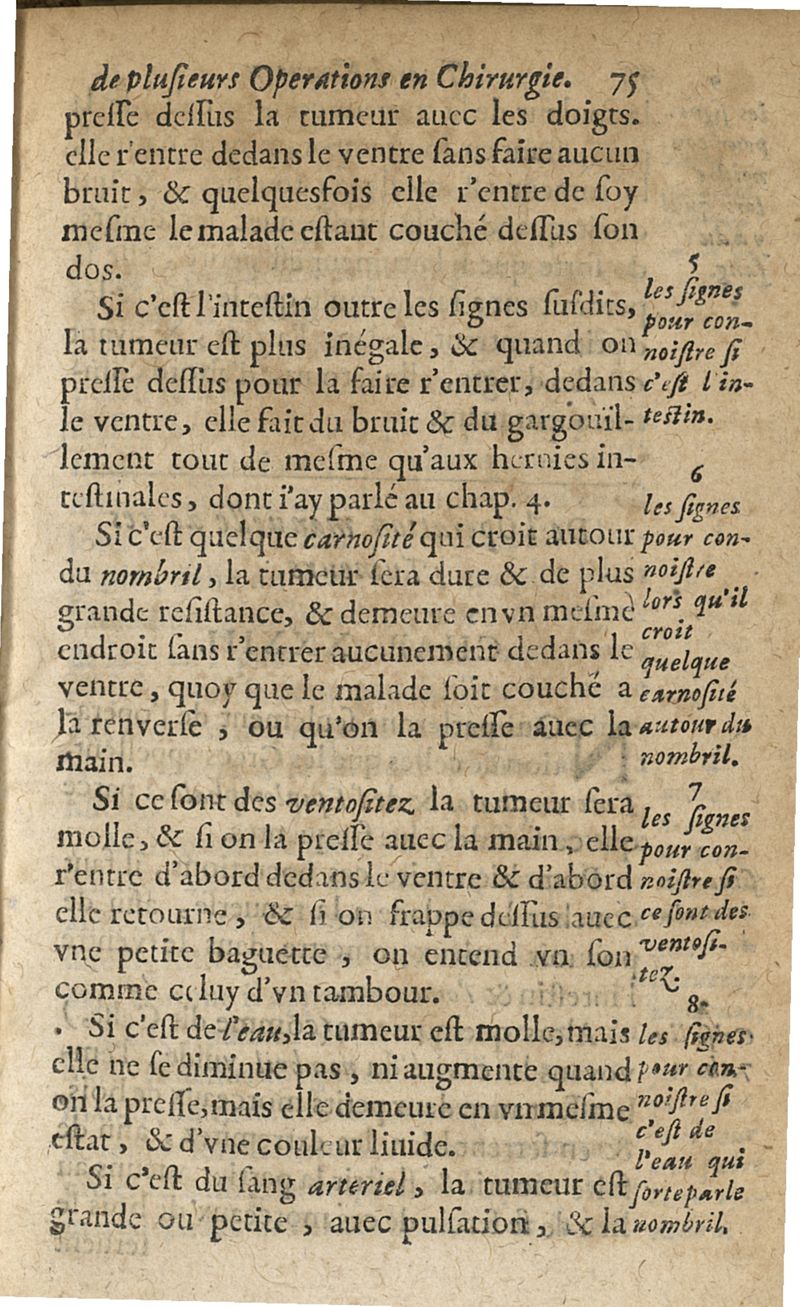 de pluſieurs Operations en Chirurgie. 75
preſſe deſſus la tumeur auec les doigts.
elle r'entre dedans le ventre ſans faire aucun
bruit, & quelquesfois elle r'entre de ſoy
meſme le malade eſtant couché deſſus ſon
dos.
Si c'eſt l'inteſtin outre les ſignes ſuſdits,
la tumeur eſt plus inégale, & quand on
preſſe deſſus pour la faire r'entrer, dedans
le ventre, elle fait du bruit & du gargouil-
lement tout de meſme qu'aux hernies in-
teſtinales, dont i'ay parlé au chap. 4.
Si c'eſt quelque carnoſité qui croit autour
du nombril, la tumeur ſera dure & de plus
grande reſiſtance, & demeure en vn meſme
endroit ſans r'entrer aucunement dedans le
ventre, quoy que le malade ſoit couché a
la renverſe, ou qu'on la preſſe auec la
main.
Si ce ſont des ventoſitez la tumeur ſera
molle, & ſi on la preſſe auec la main, elle
r'entre d'abord dedans le ventre & d'abord
elle retourne, & ſi on frappe deſſus auec
vne petite baguette, on entend vn ſon
comme celuy d'vn tambour.
Si c'eſt de l'eau, la tumeur eſt molle, mais
elle ne ſe diminue pas, ni augmente quand
on la preſſe, mais elle demeure en vn meſme
eſtat, & d'vne couleur liuide.
Si c'eſt du ſang arteriel, la tumeur eſt
grande ou petite, auec pulſation, & la
5
les ſignes
pour con-
noiſtre ſi
c'eſt l'in-
teſtin.
6
les ſignes
pour con-
noiſtre
lors qu'il
croit
quelque
carnoſité
autour du
nombril.
7
les ſignes
pour con-
noiſtre ſi
ce ſont des
ventoſi-
tez.
8
les ſignes
pour con-
noiſtre ſi
c'eſt de
l'eau qui
ſorte par le
nombril.